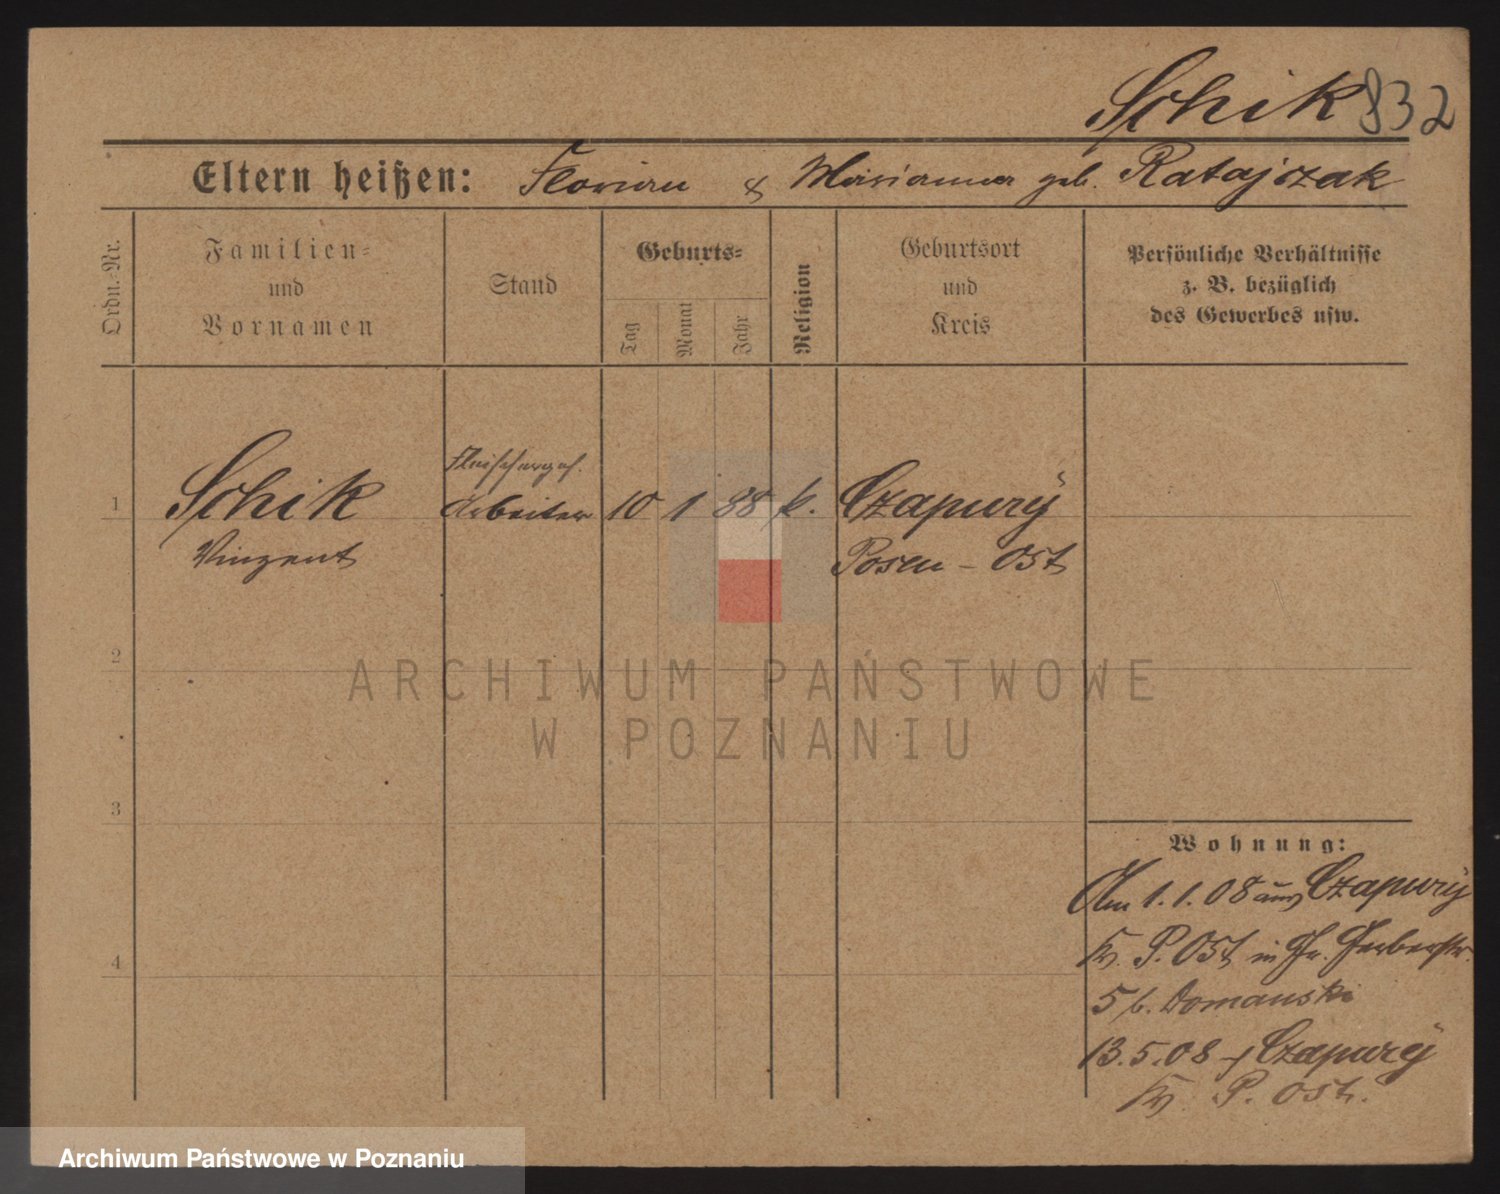 Schik 832
Eltern heißen: Florian & Marianna geb. Ratajczak
Ordn.-Nr.
Familien-
und
Vornamen
Stand
Geburts-
Tag
Monat
Jahr
Religion
Geburtsort
und
Kreis
Persönliche Verhältnisse
z. B. bezüglich
des Gewerbes usw.
Fleischerges.
1 Schik Arbeiter 10 1 88 k. Czapury
Vinzent Posen - Ost
2
ARCHIWUM PAŃSTWOWE
W POZNANIU
3
Wohnung:
Am 1.1.08 aus Czapury
Kr. P. Ost in Gr. Gerberstr.
5 b. Domanski
13.5.08 Czapury
Kr. P. Ost.
4
Archiwum Państwowe w Poznaniu